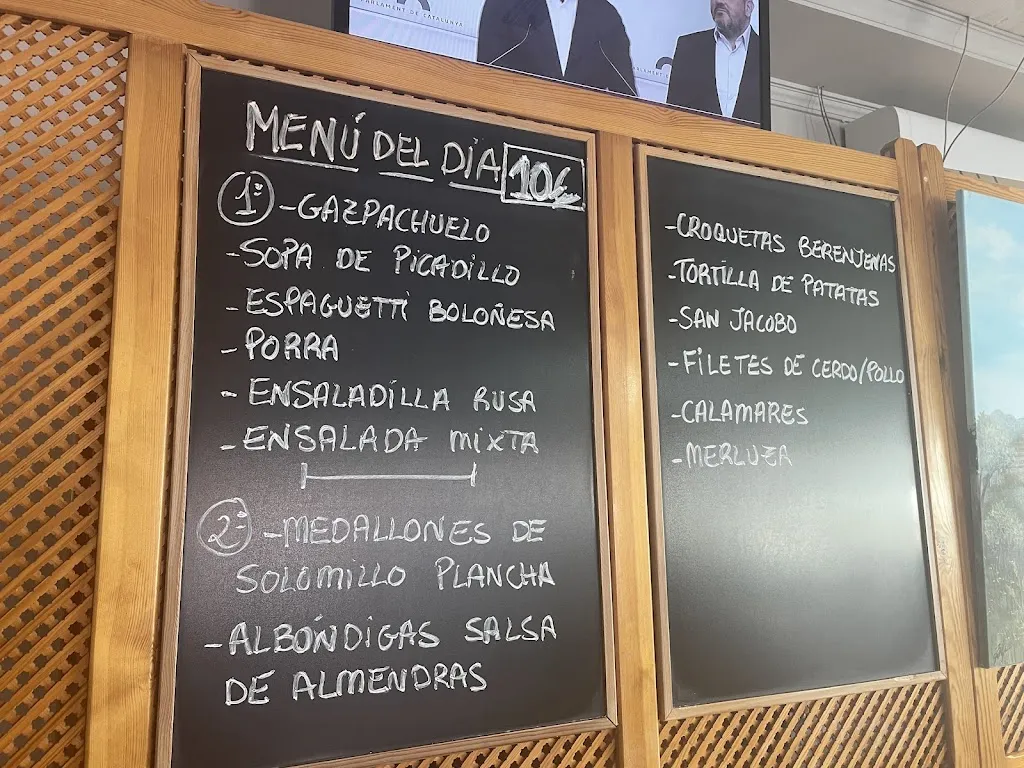 PARLAMENT DE CATALUNYA
MENÚ DEL DÍA 10€
1º -GAZPACHUELO
-SOPA DE PICADILLO
-ESPAGUETTI BOLOÑESA
-PORRA
-ENSALADILLA RUSA
-ENSALADA MIXTA
2º -MEDALLONES DE
SOLOMILLO PLANCHA
-ALBÓNDIGAS SALSA
DE ALMENDRAS
-CROQUETAS BERENJENAS
-TORTILLA DE PATATAS
-SAN JACOBO
-FILETES DE CERDO/POLLO
-CALAMARES
-MERLUZA